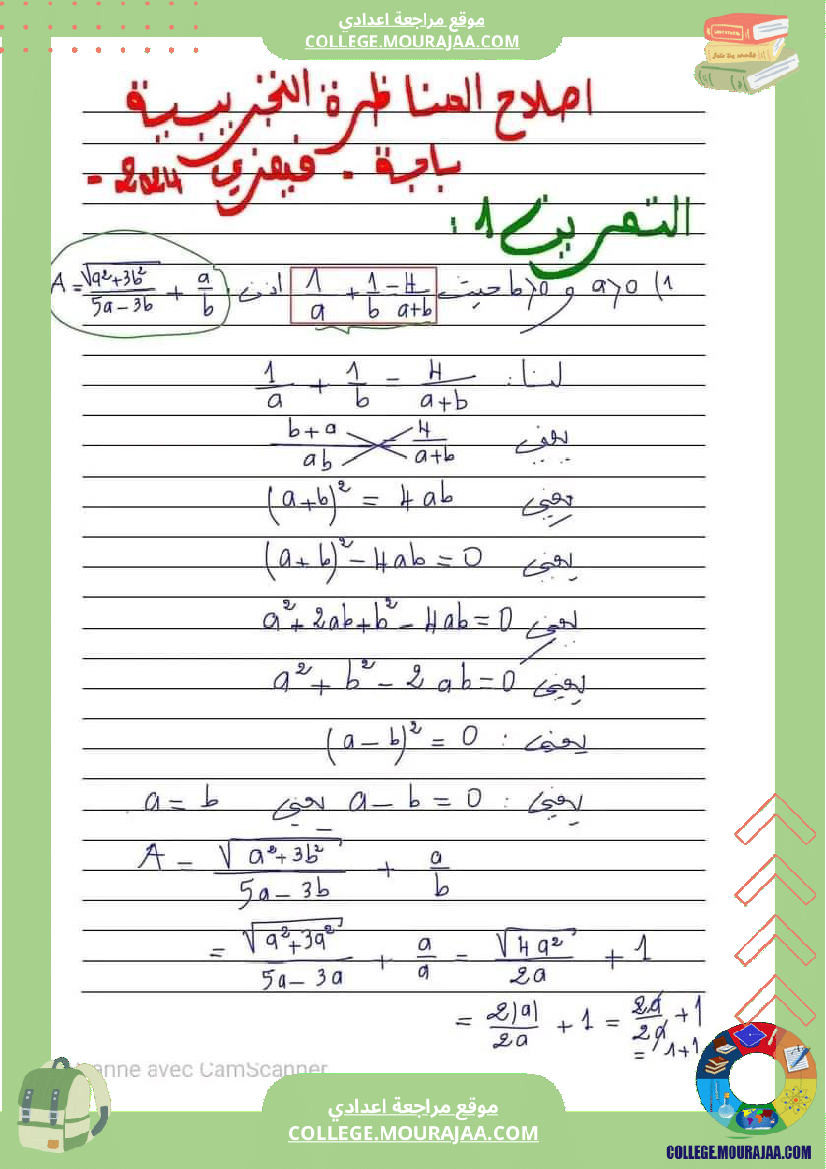 موقع مراجعة اعدادي
COLLEGE.MOURAJAA.COM
اصلاح المناظرة التجريبية
باجة - فيفري 2024 -
التمرين 1 :
1) a>0 و b>0 حيث 1/a + 1/b = 4/(a+b) اذن A = √(a²+3b²)/(5a-3b) + a/b
لنا: 1/a + 1/b = 4/(a+b)
يعني (b+a)/ab = 4/(a+b)
يعني (a+b)² = 4ab
يعني (a+b)² - 4ab = 0
يعني a² + 2ab + b² - 4ab = 0
يعني a² + b² - 2ab = 0
يعني : (a-b)² = 0
يعني : a - b = 0 يعني a = b
A = √(a²+3b²)/(5a-3b) + a/b
= √(a²+3a²)/(5a-3a) + a/a = √(4a²)/2a + 1
= 2|a|/2a + 1 = 2a/2a + 1
= 1+1
anne avec CamScanner
موقع مراجعة اعدادي
COLLEGE.MOURAJAA.COM
COLLEGE.MOURAJAA.COM